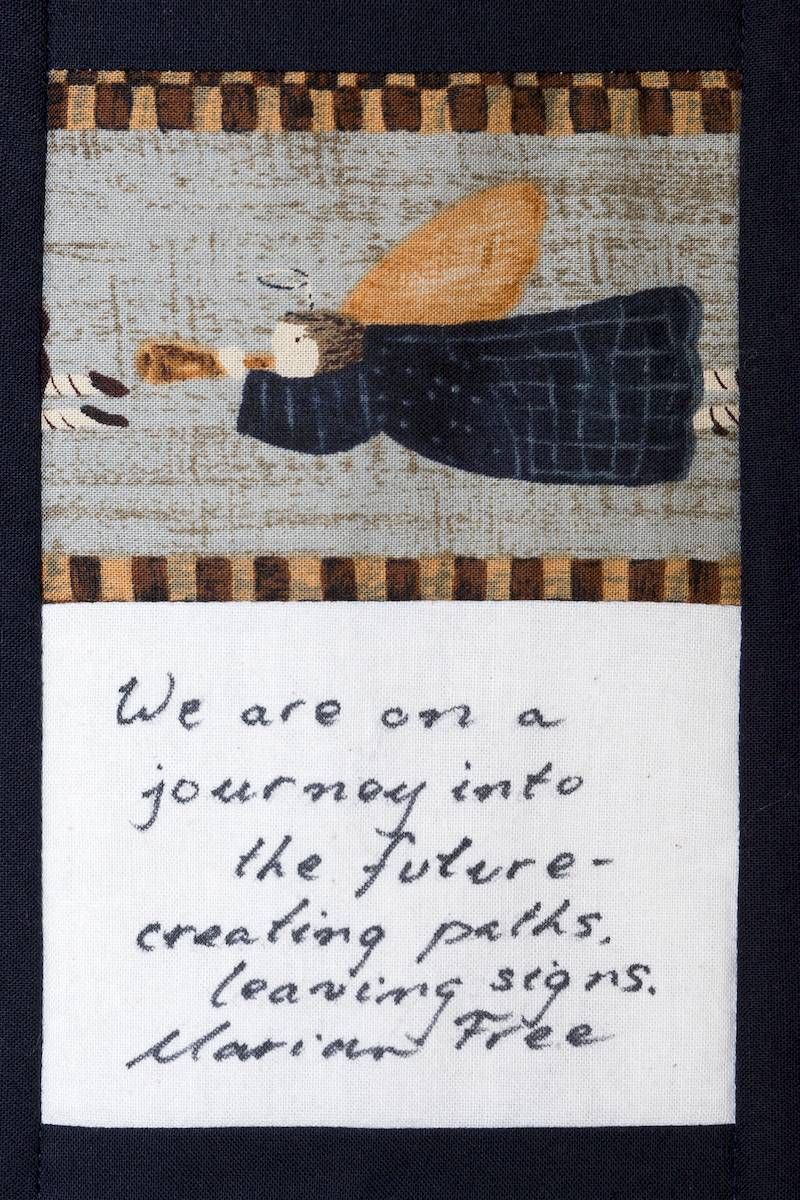 We are on a
journey into
the future-
creating paths,
leaving signs.
Marian Free